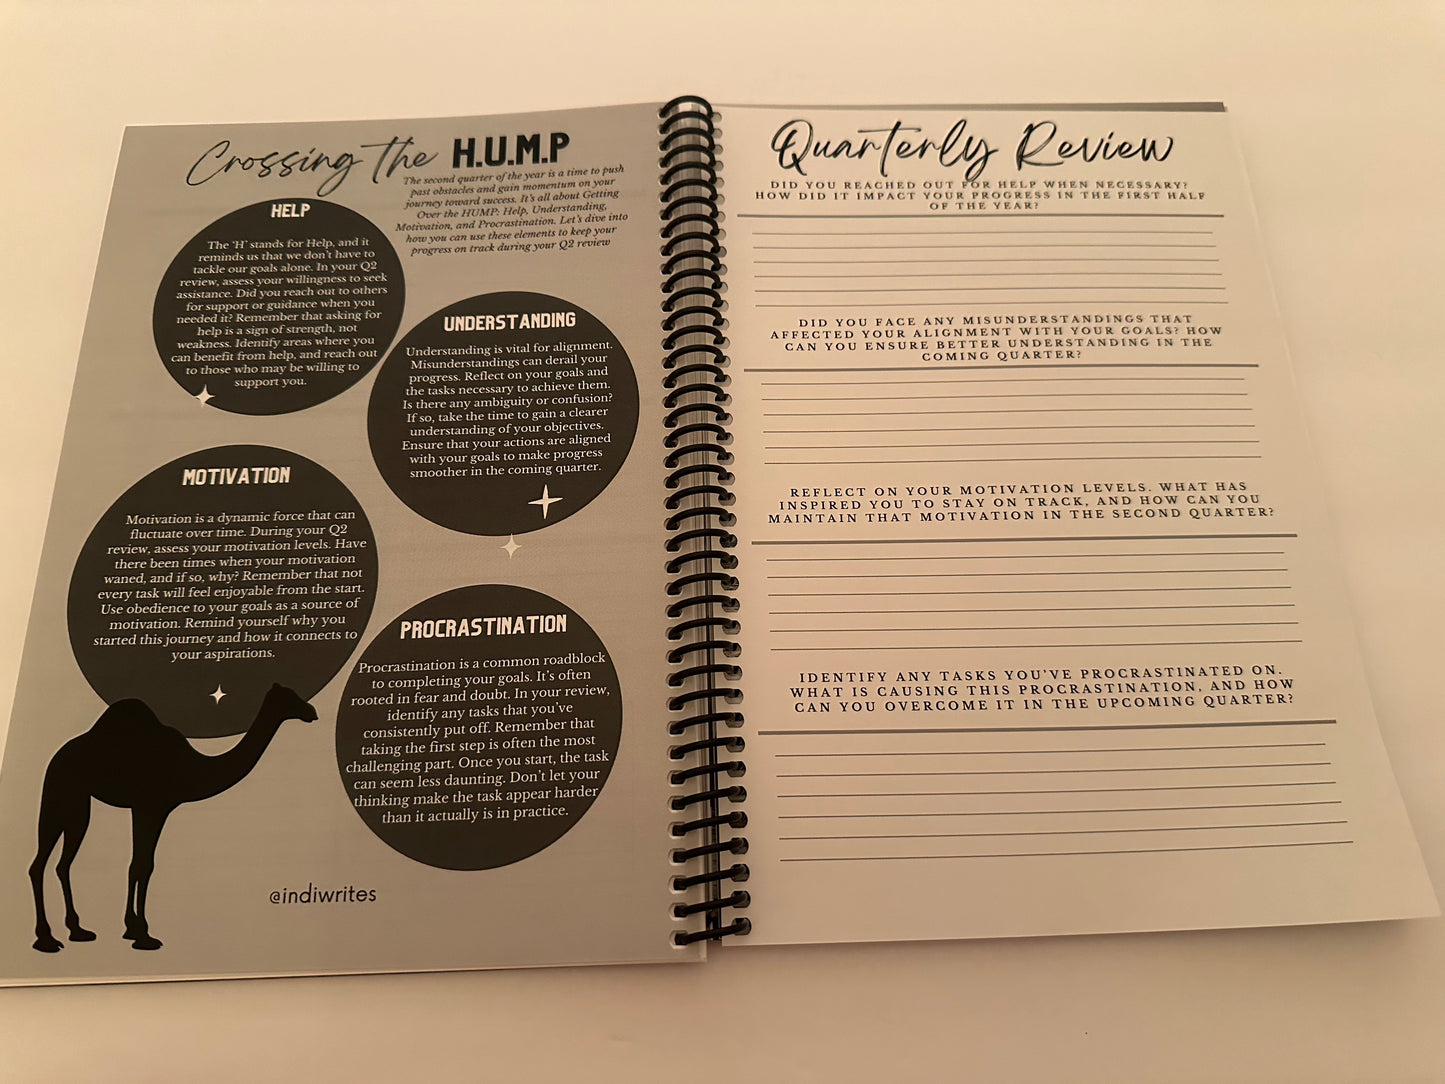 Crossing the H.U.M.P
The second quarter of the year is a time to push
past obstacles and gain momentum on your
journey toward success. It's all about Getting
Over the HUMP: Help, Understanding,
Motivation, and Procrastination. Let's dive into
how you can use these elements to keep your
progress on track during your Q2 review
HELP
The 'H' stands for Help, and it
reminds us that we don't have to
tackle our goals alone. In your Q2
review, assess your willingness to seek
assistance. Did you reach out to others
for support or guidance when you
needed it? Remember that asking for
help is a sign of strength, not
weakness. Identify areas where you
can benefit from help, and reach out
to those who may be willing to
support you.
UNDERSTANDING
Understanding is vital for alignment.
Misunderstandings can derail your
progress. Reflect on your goals and
the tasks necessary to achieve them.
Is there any ambiguity or confusion?
If so, take the time to gain a clearer
understanding of your objectives.
Ensure that your actions are aligned
with your goals to make progress
smoother in the coming quarter.
MOTIVATION
Motivation is a dynamic force that can
fluctuate over time. During your Q2
review, assess your motivation levels. Have
there been times when your motivation
waned, and if so, why? Remember that not
every task will feel enjoyable from the start.
Use obedience to your goals as a source of
motivation. Remind yourself why you
started this journey and how it connects to
your aspirations.
PROCRASTINATION
Procrastination is a common roadblock
to completing your goals. It's often
rooted in fear and doubt. In your review,
identify any tasks that you've
consistently put off. Remember that
taking the first step is often the most
challenging part. Once you start, the task
can seem less daunting. Don't let your
thinking make the task appear harder
than it actually is in practice.
@indiwrites
Quarterly Review
DID YOU REACHED OUT FOR HELP WHEN NECESSARY?
HOW DID IT IMPACT YOUR PROGRESS IN THE FIRST HALF
OF THE YEAR?
DID YOU FACE ANY MISUNDERSTANDINGS THAT
AFFECTED YOUR ALIGNMENT WITH YOUR GOALS? HOW
CAN YOU ENSURE BETTER UNDERSTANDING IN THE
COMING QUARTER?
REFLECT ON YOUR MOTIVATION LEVELS. WHAT HAS
INSPIRED YOU TO STAY ON TRACK, AND HOW CAN YOU
MAINTAIN THAT MOTIVATION IN THE SECOND QUARTER?
IDENTIFY ANY TASKS YOU'VE PROCRASTINATED ON.
WHAT IS CAUSING THIS PROCRASTINATION, AND HOW
CAN YOU OVERCOME IT IN THE UPCOMING QUARTER?